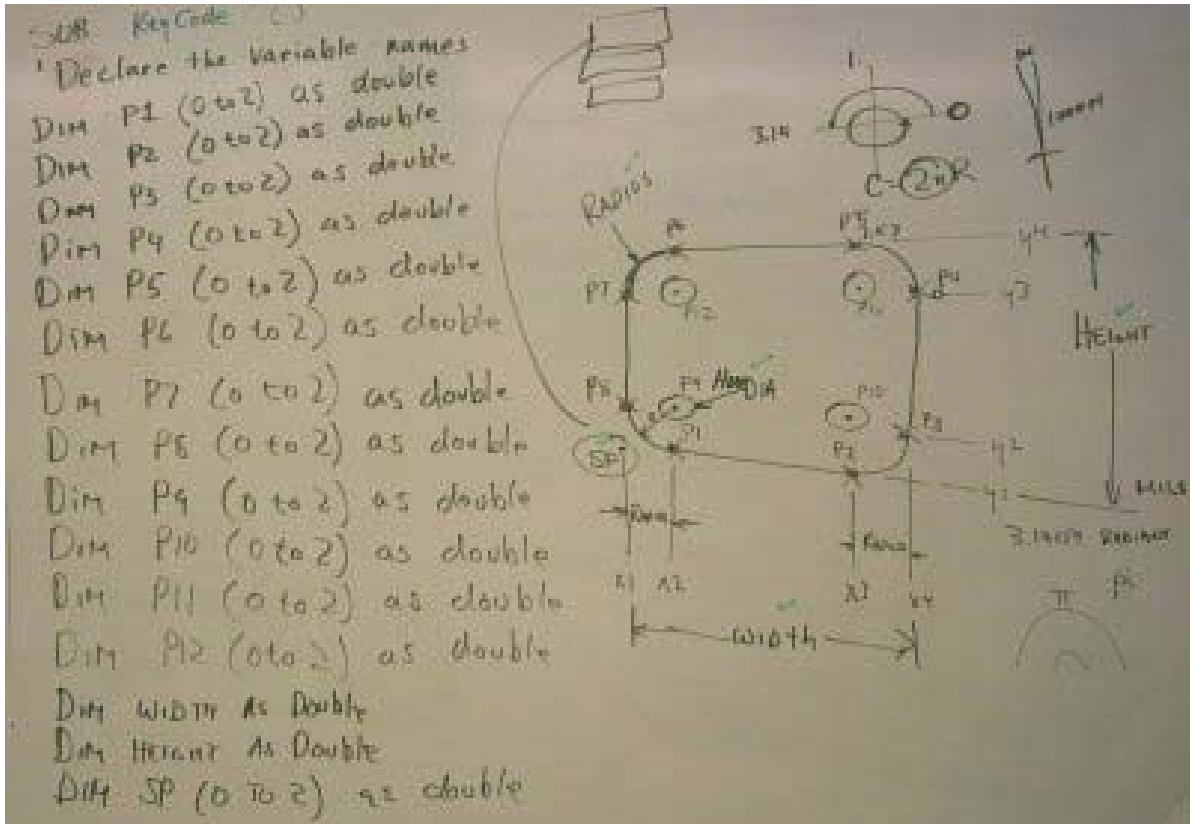 SUB KeyCode ()
' Declare the variable names
Dim P1 (0 to 2) as double
Dim P2 (0 to 2) as double
Dim P3 (0 to 2) as double
Dim P4 (0 to 2) as double
Dim P5 (0 to 2) as double
Dim P6 (0 to 2) as double
Dim P7 (0 to 2) as double
Dim P8 (0 to 2) as double
Dim P9 (0 to 2) as double
Dim P10 (0 to 2) as double
Dim P11 (0 to 2) as double
Dim P12 (0 to 2) as double
Dim WIDTH As Double
Dim HEIGHT As Double
Dim SP (0 To 2) as double
3.14
0
C-2πR
RADIOS
P6
y4
P7
P12
P4
y3
HEIGHT
P8
P9
DIA
P10
P3
SP
P1
P2
y2
y1
X1
X2
X3
X4
WIDTH
π
pi